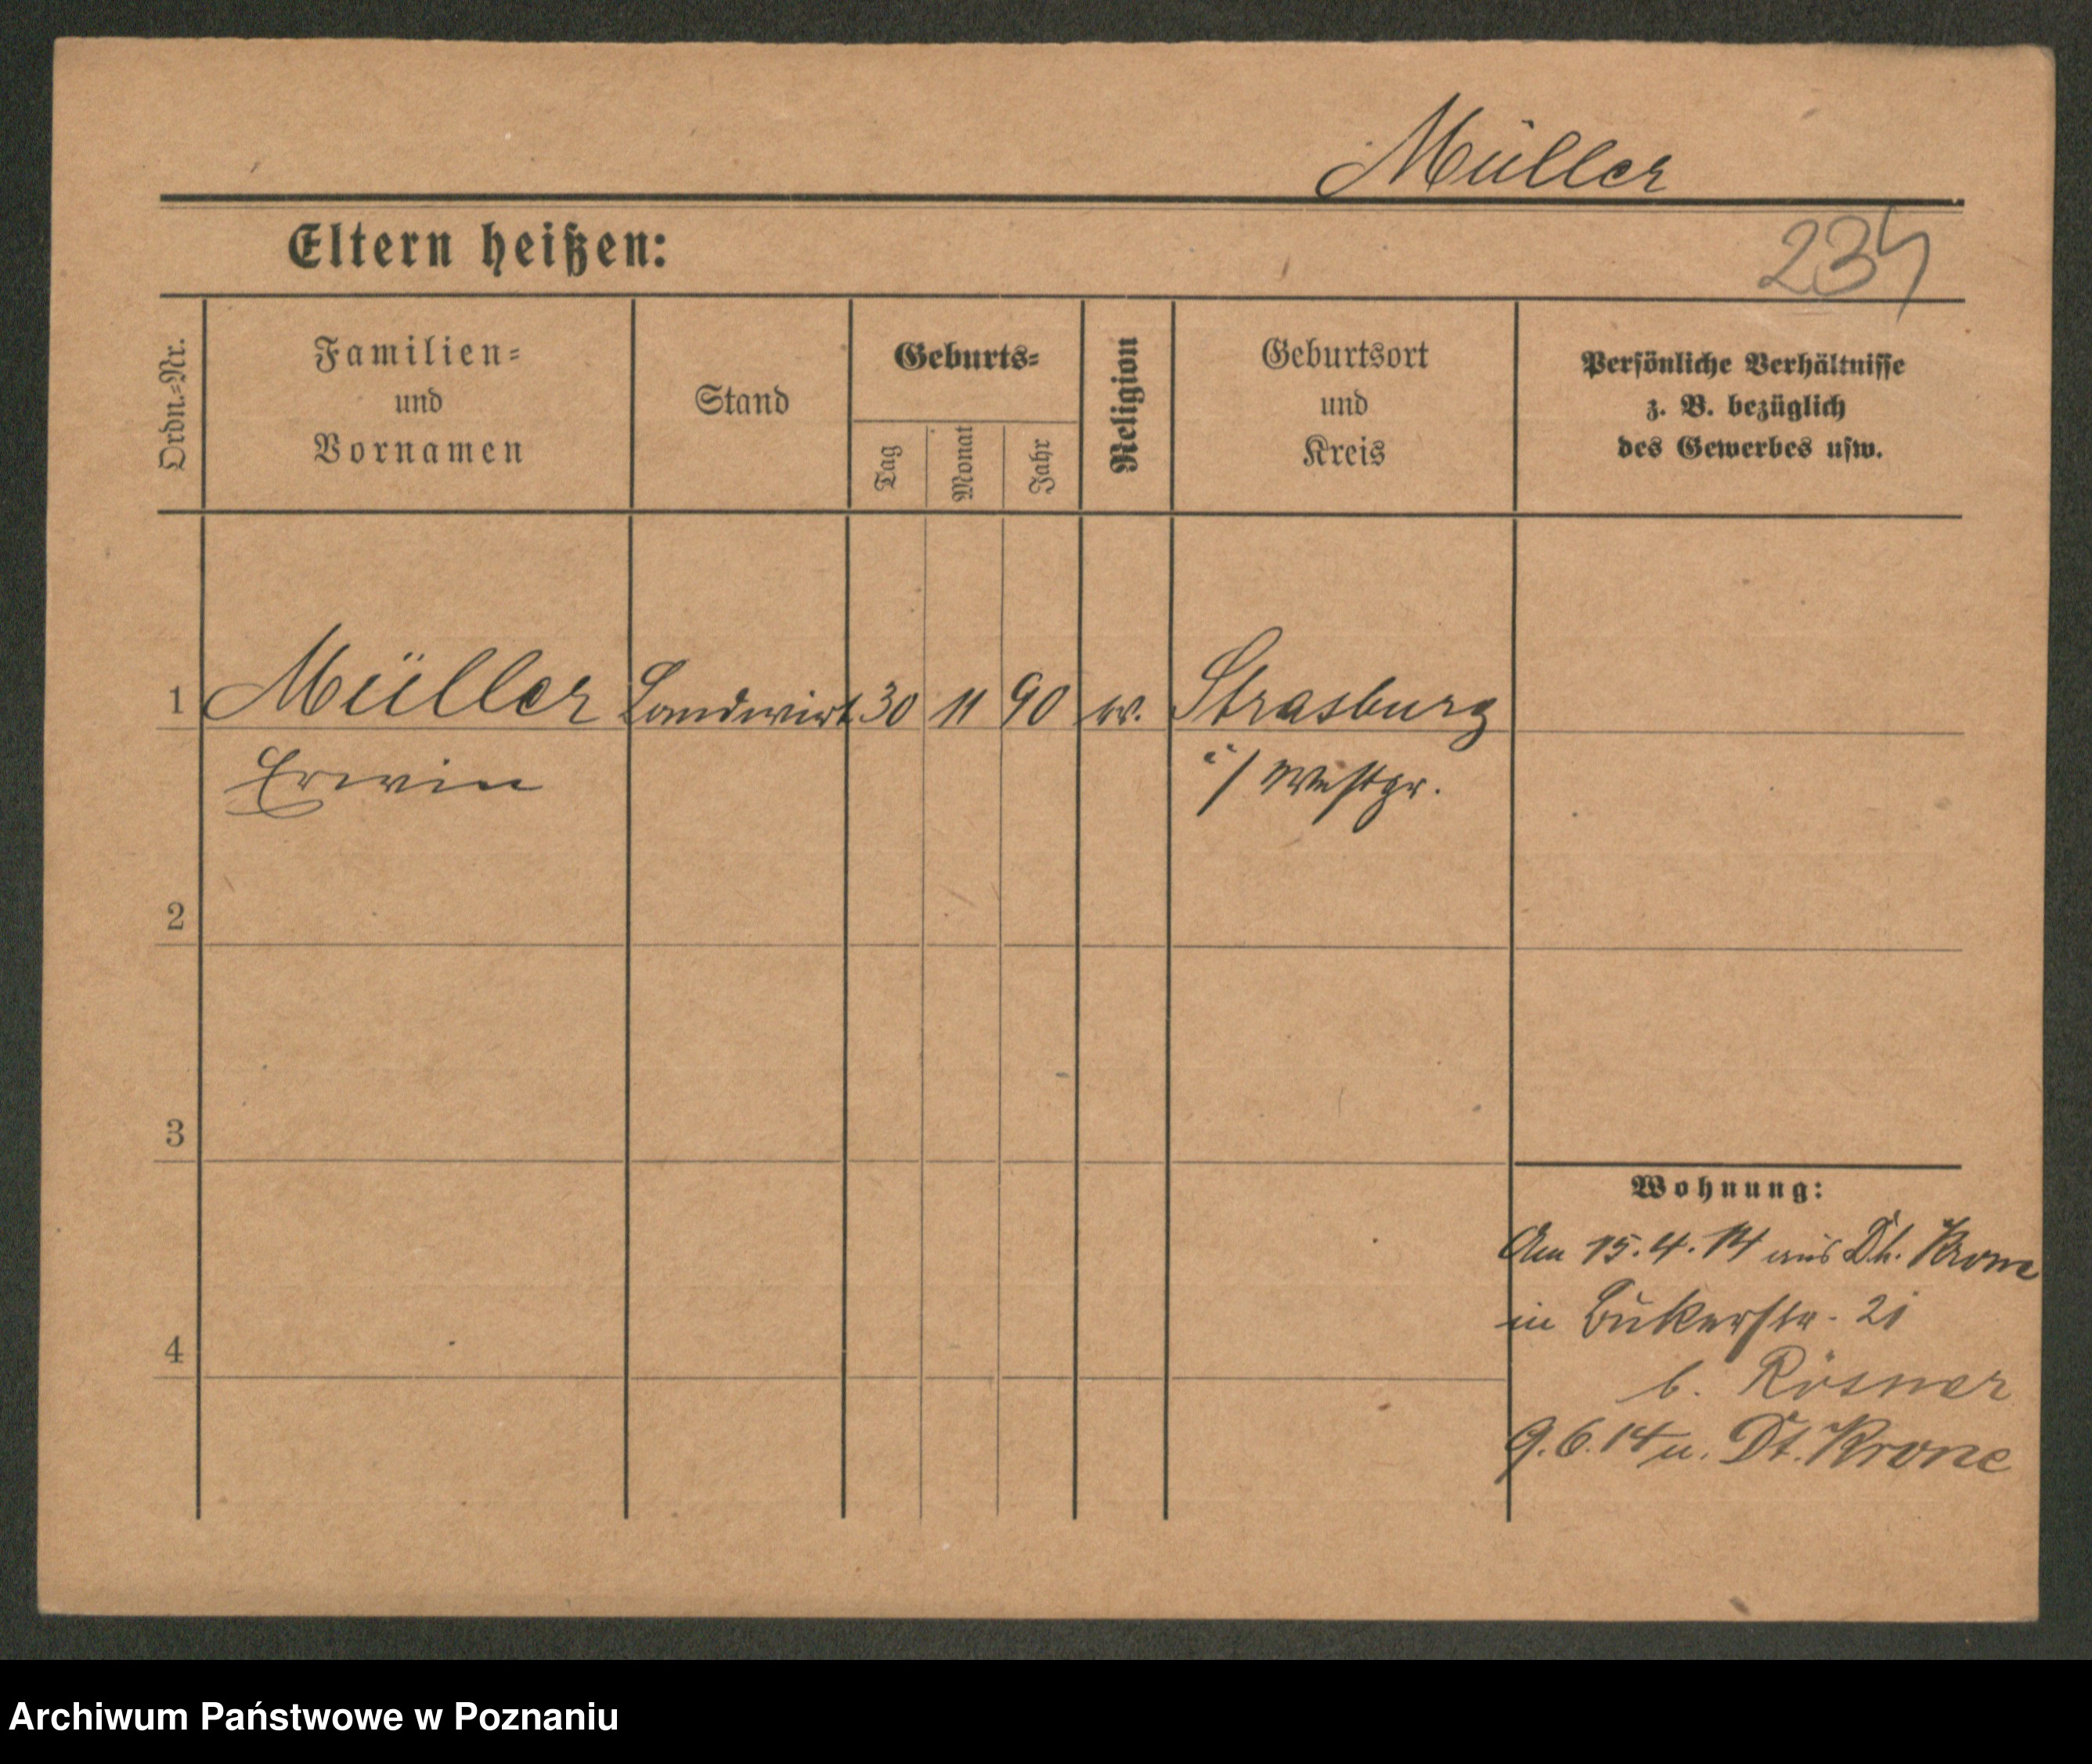 Müller
Eltern heißen:
234
Ordn.=Nr.
Familien=
und
Vornamen
Stand
Geburts=
Tag
Monat
Jahr
Religion
Geburtsort
und
Kreis
Persönliche Verhältnisse
z. B. bezüglich
des Gewerbes usw.
1 Müller Landwirt 30 11 90 ev. Strasburg
Erwin i/ Westpr.
2
3
Wohnung:
Am 15.4.14 aus Dt. Krone
in Bukerstr. 21
4
b. Rösner
9.6.14 n. Dt. Krone
Archiwum Państwowe w Poznaniu